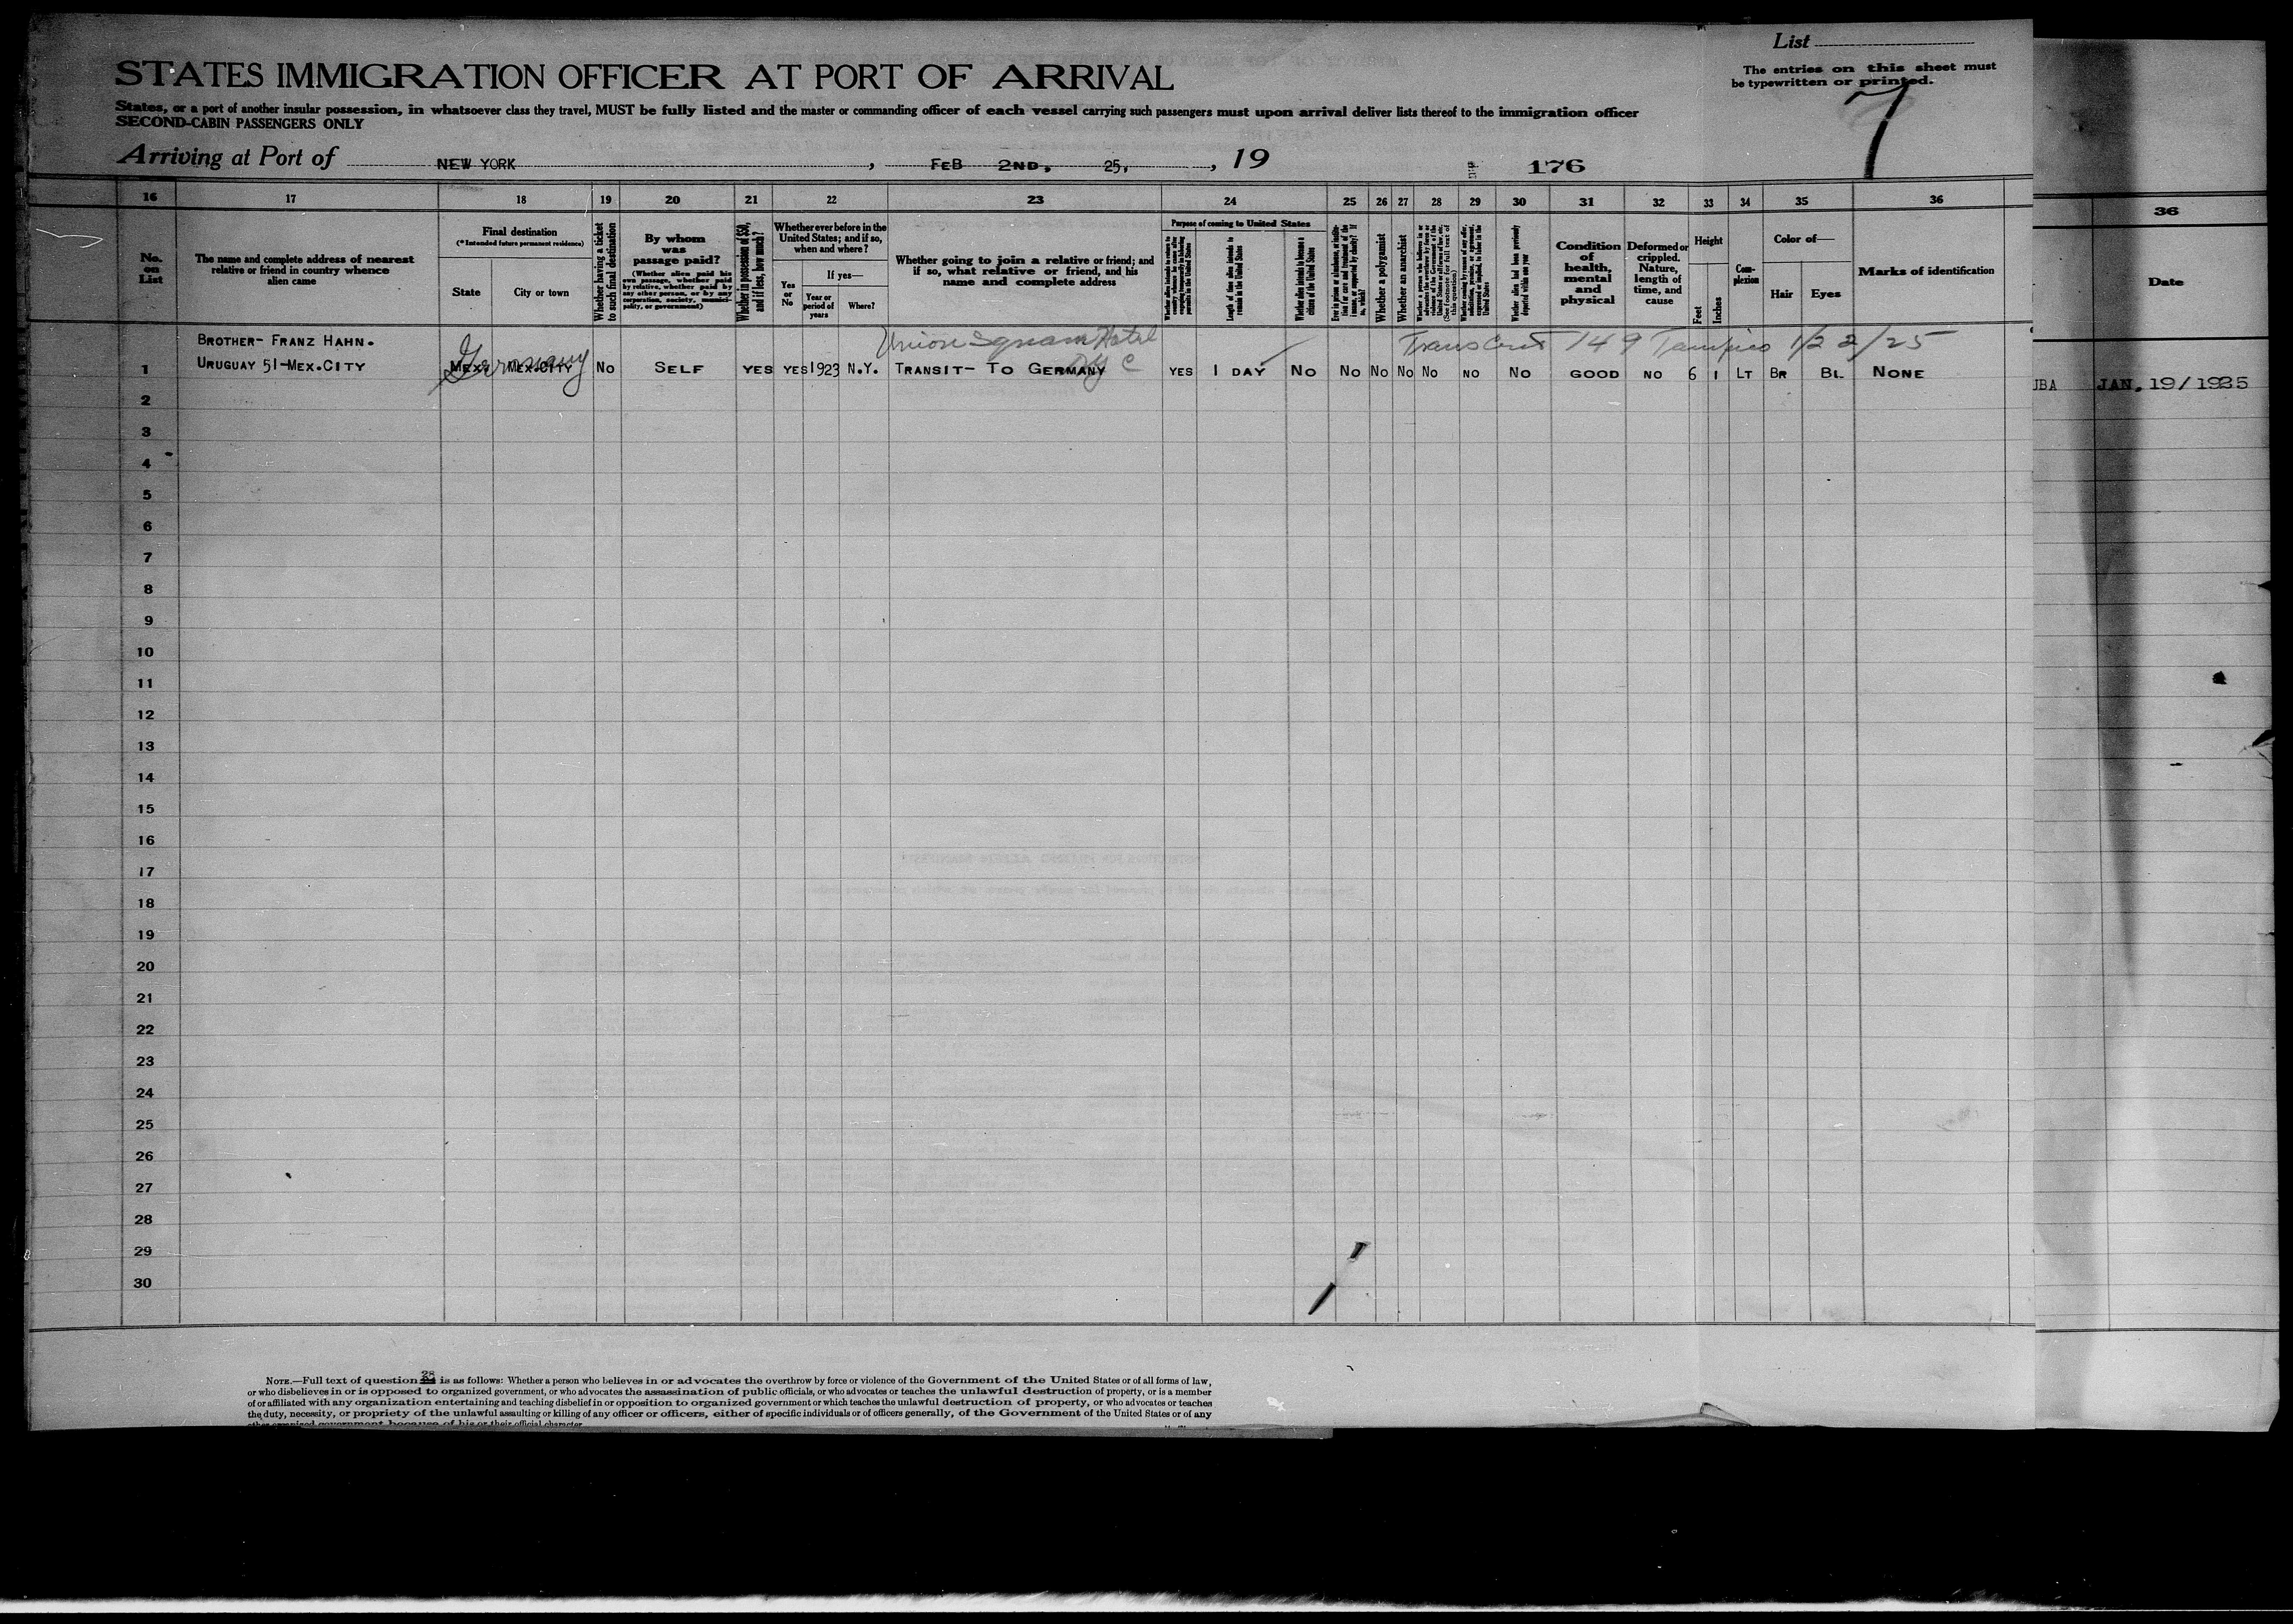 List
The entries on this sheet must
be typewritten or printed.
7
STATES IMMIGRATION OFFICER AT PORT OF ARRIVAL
States, or a port of another insular possession, in whatsoever class they travel, MUST be fully listed and the master or commanding officer of each vessel carrying such passengers must upon arrival deliver lists thereof to the immigration officer
SECOND-CABIN PASSENGERS ONLY
Arriving at Port of NEW YORK, FEB 2ND, 25, , 19
176
16 17 18 19 20 21 22 23 24 25 26 27 28 29 30 31 32 33 34 35 36
36
No. on List
The name and complete address of nearest
relative or friend in country whence
alien came
Final destination
(*Intended future permanent residence)
State
City or town
Whether having a ticket
to such final destination
By whom
was
passage paid?
(Whether alien paid his
own passage, whether paid
by relative, whether paid by
any other person, or by any
corporation, society, munici-
pality, or government)
Whether in possession of $50,
and if less, how much?
Whether ever before in the
United States; and if so,
when and where?
Yes
or
No
If yes—
Year or
period of
years
Where?
Whether going to join a relative or friend; and
if so, what relative or friend, and his
name and complete address
Purpose of coming to United States
Length of time alien intends to
remain in the United States
Whether alien intends to become a
citizen of the United States
Whether a polygamist
Whether an anarchist
Whether alien had been previously
deported within one year
Condition
of
health,
mental
and
physical
Deformed or
crippled.
Nature,
length of
time, and
cause
Height
Feet
Inches
Com-
plexion
Color of—
Hair
Eyes
Marks of identification
Date
BROTHER- FRANZ HAHN.
Union Square Hotel
Trans Cert 149 Tampico 1/22/25
1 URUGUAY 51-MEX.CITY MEX. MEX.CITY Germany NO SELF YES YES 1923 N.Y. TRANSIT- TO GERMANY NYC YES 1 DAY NO NO NO NO NO NO NO GOOD NO 6 1 LT BR BL NONE
UBA JAN, 19/1925
2
3
4
5
6
7
8
9
10
11
12
13
14
15
16
17
18
19
20
21
22
23
24
25
26
27
28
29
30
NOTE.—Full text of question 28 is as follows: Whether a person who believes in or advocates the overthrow by force or violence of the Government of the United States or of all forms of law,
or who disbelieves in or is opposed to organized government, or who advocates the assassination of public officials, or who advocates or teaches the unlawful destruction of property, or is a member
of or affiliated with any organization entertaining and teaching disbelief in or opposition to organized government or which teaches the unlawful destruction of property, or who advocates or teaches
the duty, necessity, or propriety of the unlawful assaulting or killing of any officer or officers, either of specific individuals or of officers generally, of the Government of the United States or of any
other organized government because of his or their official character.